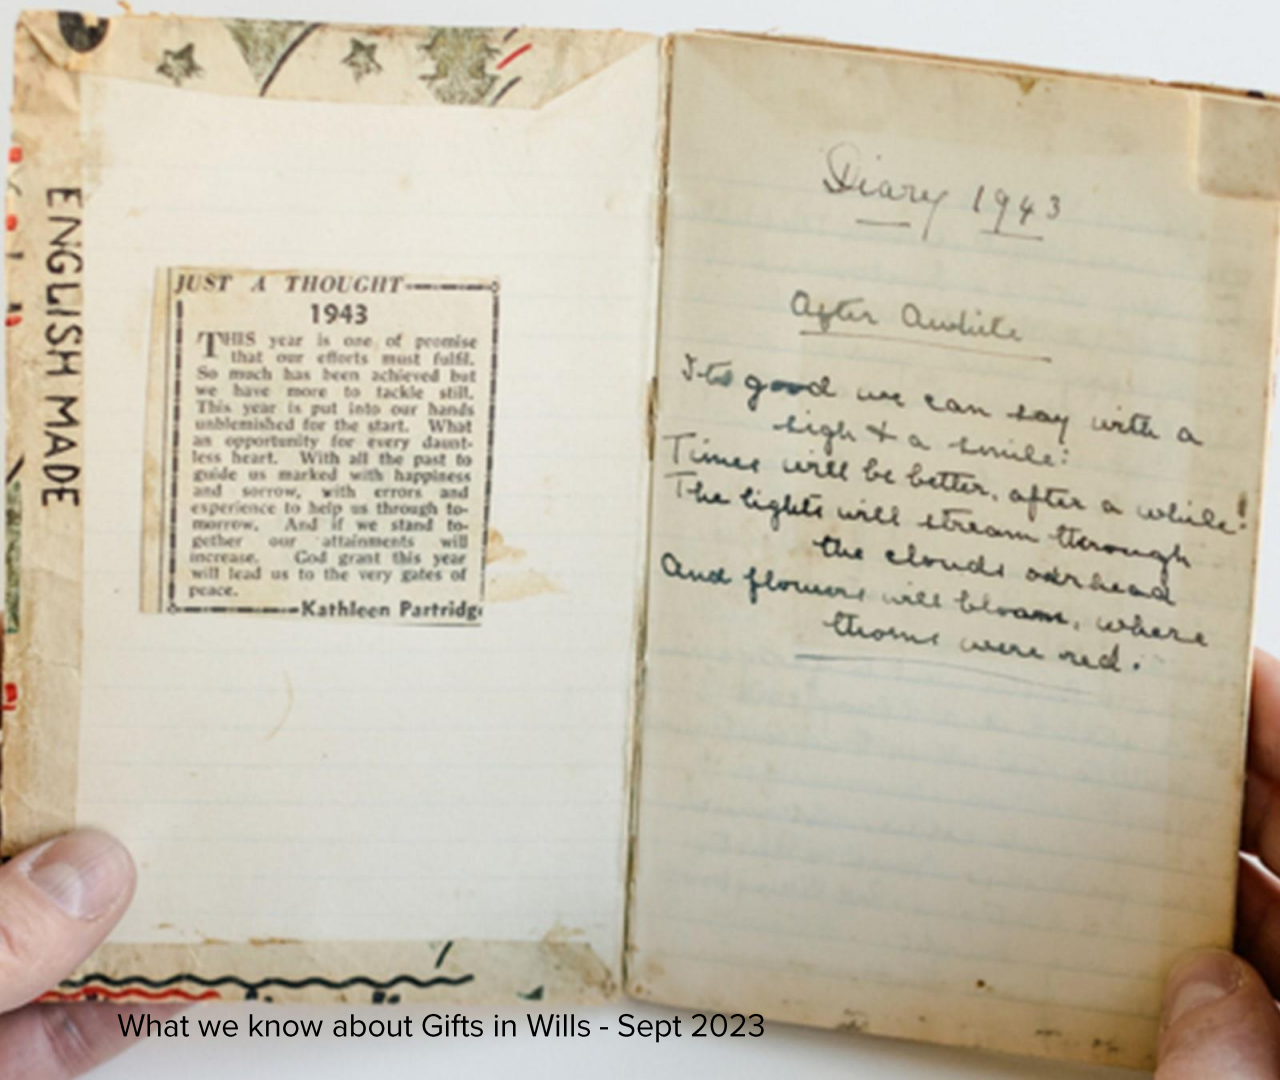 ENGLISH MADE
JUST A THOUGHT
1943
THIS year is one of promise
that our efforts must fulfil.
So much has been achieved but
we have more to tackle still.
This year is put into our hands
unblemished for the start. What
an opportunity for every daunt-
less heart. With all the past to
guide us marked with happiness
and sorrow, with errors and
experience to help us through to-
morrow. And if we stand to-
gether our attainments will
increase. God grant this year
will lead us to the very gates of
peace.
Kathleen Partridg
Diary 1943
After Awhile
Its good we can say with a
sigh & a smile:
Times will be better, after a while!
The lights will stream through
the clouds overhead
And flowers will bloom, where
thorns were red.
What we know about Gifts in Wills - Sept 2023